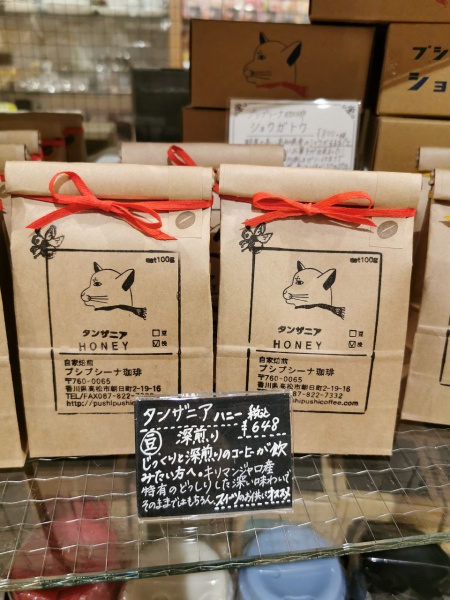 プシ
ショ
プシプシーナ珈琲
ショウガトウ
net100g
タンザニア
HONEY
豆
挽
自家焙煎
プシプシーナ珈琲
〒760-0065
香川県高松市朝日町2-19-16
TEL/FAX087-822-7332
http://pushipushicoffee.com
net100g
タンザニア
HONEY
豆
挽
自家焙煎
プシプシーナ珈琲
〒760-0065
香川県高松市朝日町2-19-16
87-822-7332
ihipushicoffee.com
タンザニア ハニー 税込
¥648
豆 深煎り
じっくりと深煎りのコーヒーが飲
みたい方へ。キリマンジャロ産
特有のどっしりした深い味わいで
そのままではもちろん、スイーツのお供にオススメ。